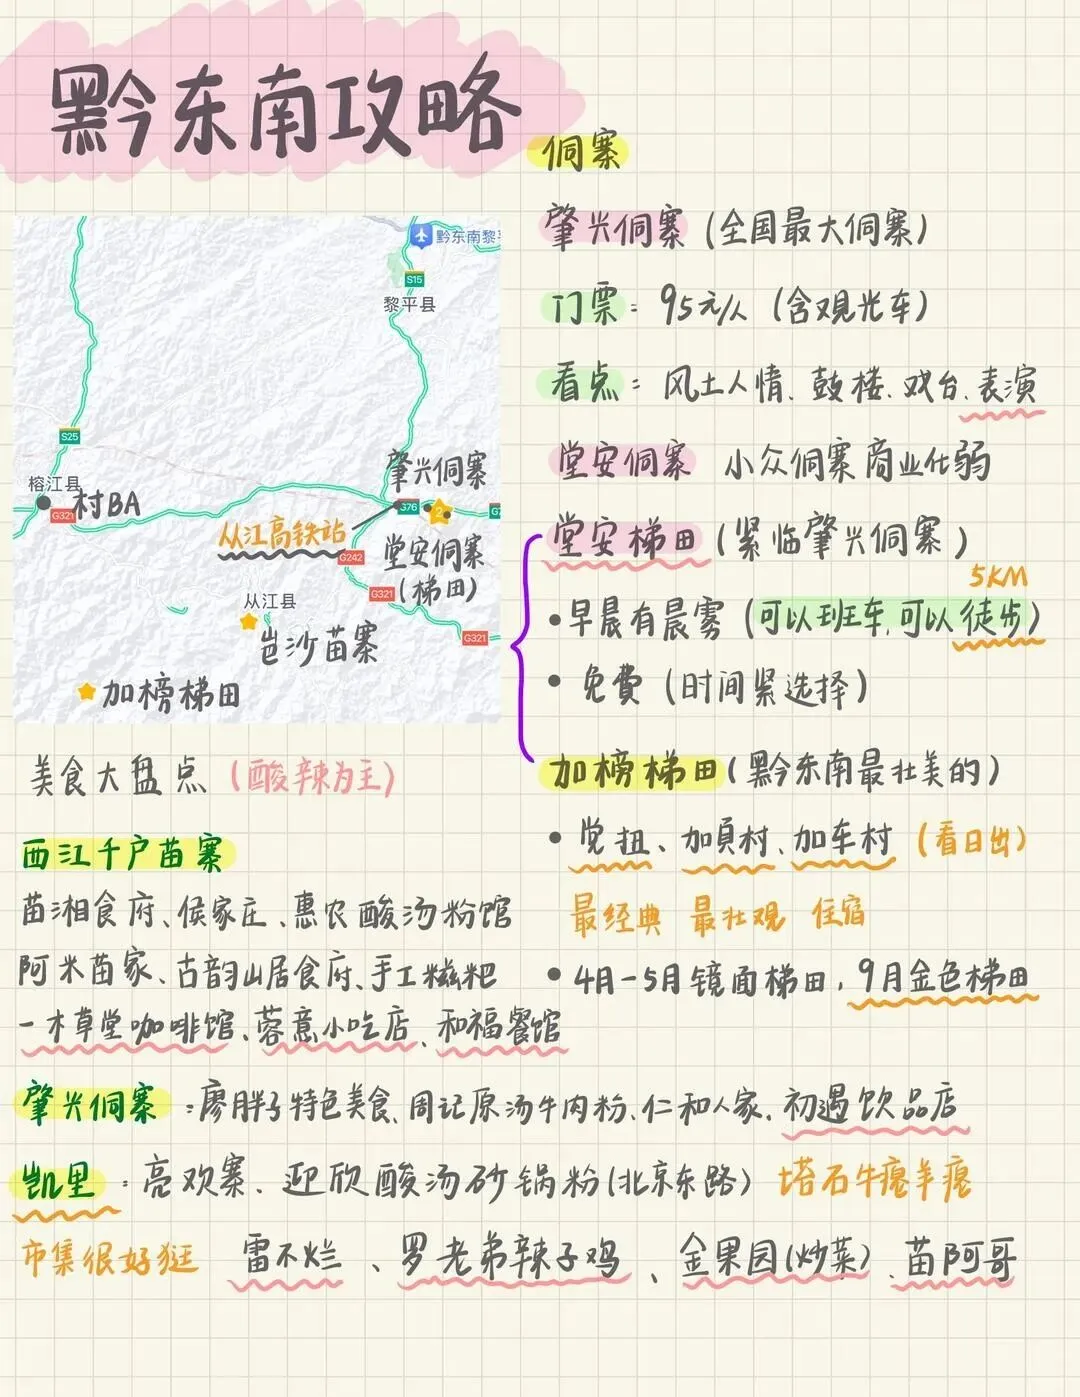 黔东南攻略
侗寨
肇兴侗寨（全国最大侗寨）
门票：95元/人（含观光车）
看点：风土人情、鼓楼、戏台、表演
堂安侗寨 小众侗寨 商业化弱
堂安梯田（紧临肇兴侗寨）
5KM
•早晨有晨雾（可以班车，可以徒步）
•免费（时间紧选择）
加榜梯田（黔东南最壮美的）
•党扭、加页村、加车村（看日出）
最经典 最壮观 住宿
•4月-5月镜面梯田，9月金色梯田
黔东南黎平
S15
黎平县
S25
榕江县
村BA
G321
肇兴侗寨
G76
2
从江高铁站
G242
堂安侗寨
（梯田）
G321
G321
从江县
岜沙苗寨
加榜梯田
美食大盘点（酸辣为主）
西江千户苗寨
苗湘食府、侯家庄、惠农酸汤粉馆
阿米苗家、古韵山居食府、手工糍粑
一木草堂咖啡馆、蓉意小吃店、和福餐馆
肇兴侗寨：廖胖子特色美食、周记原汤牛肉粉、仁和人家、初遇饮品店
凯里：亮欢寨、迎欣酸汤砂锅粉（北京东路）塔石牛瘪羊瘪
市集很好逛 雷不烂、罗老弟辣子鸡、金果园（炒菜）、苗阿哥